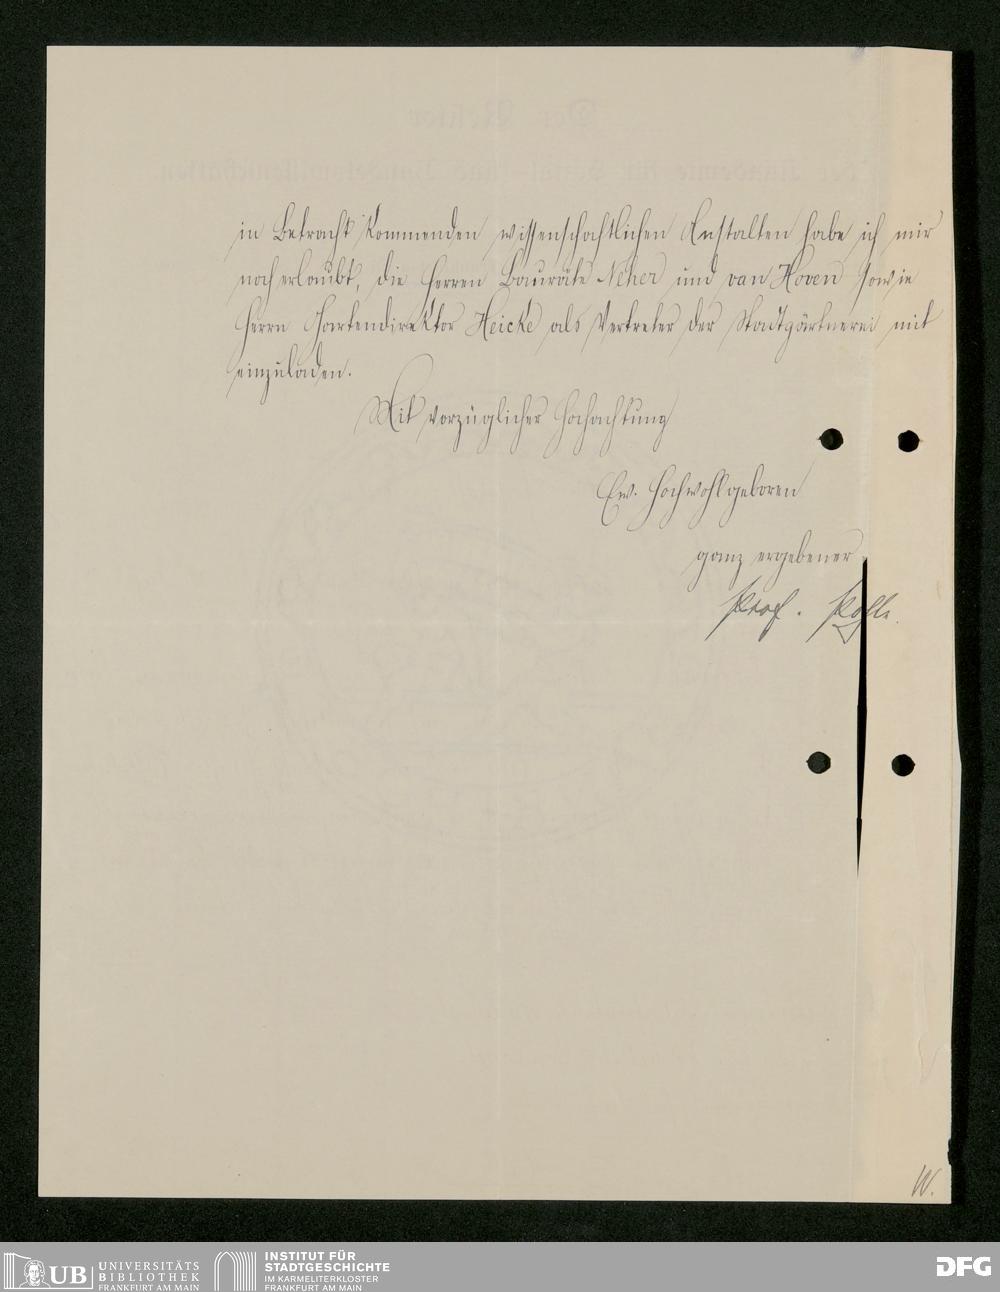 in Betracht kommenden wissenschaftlichen Anstalten habe ich mir
noch erlaubt, die Herren Bauräte Neher und van Hoven sowie
Herrn Gartendirektor Heicke als Vertreter der Stadtgärtnerei mit
einzuladen.
Mit vorzüglicher Hochachtung
Ew. Hochwohlgeboren
ganz ergebener
Prof. Pohle.
W.
UB UNIVERSITÄTS
BIBLIOTHEK
FRANKFURT AM MAIN
INSTITUT FÜR
STADTGESCHICHTE
IM KARMELITERKLOSTER
FRANKFURT AM MAIN
DFG